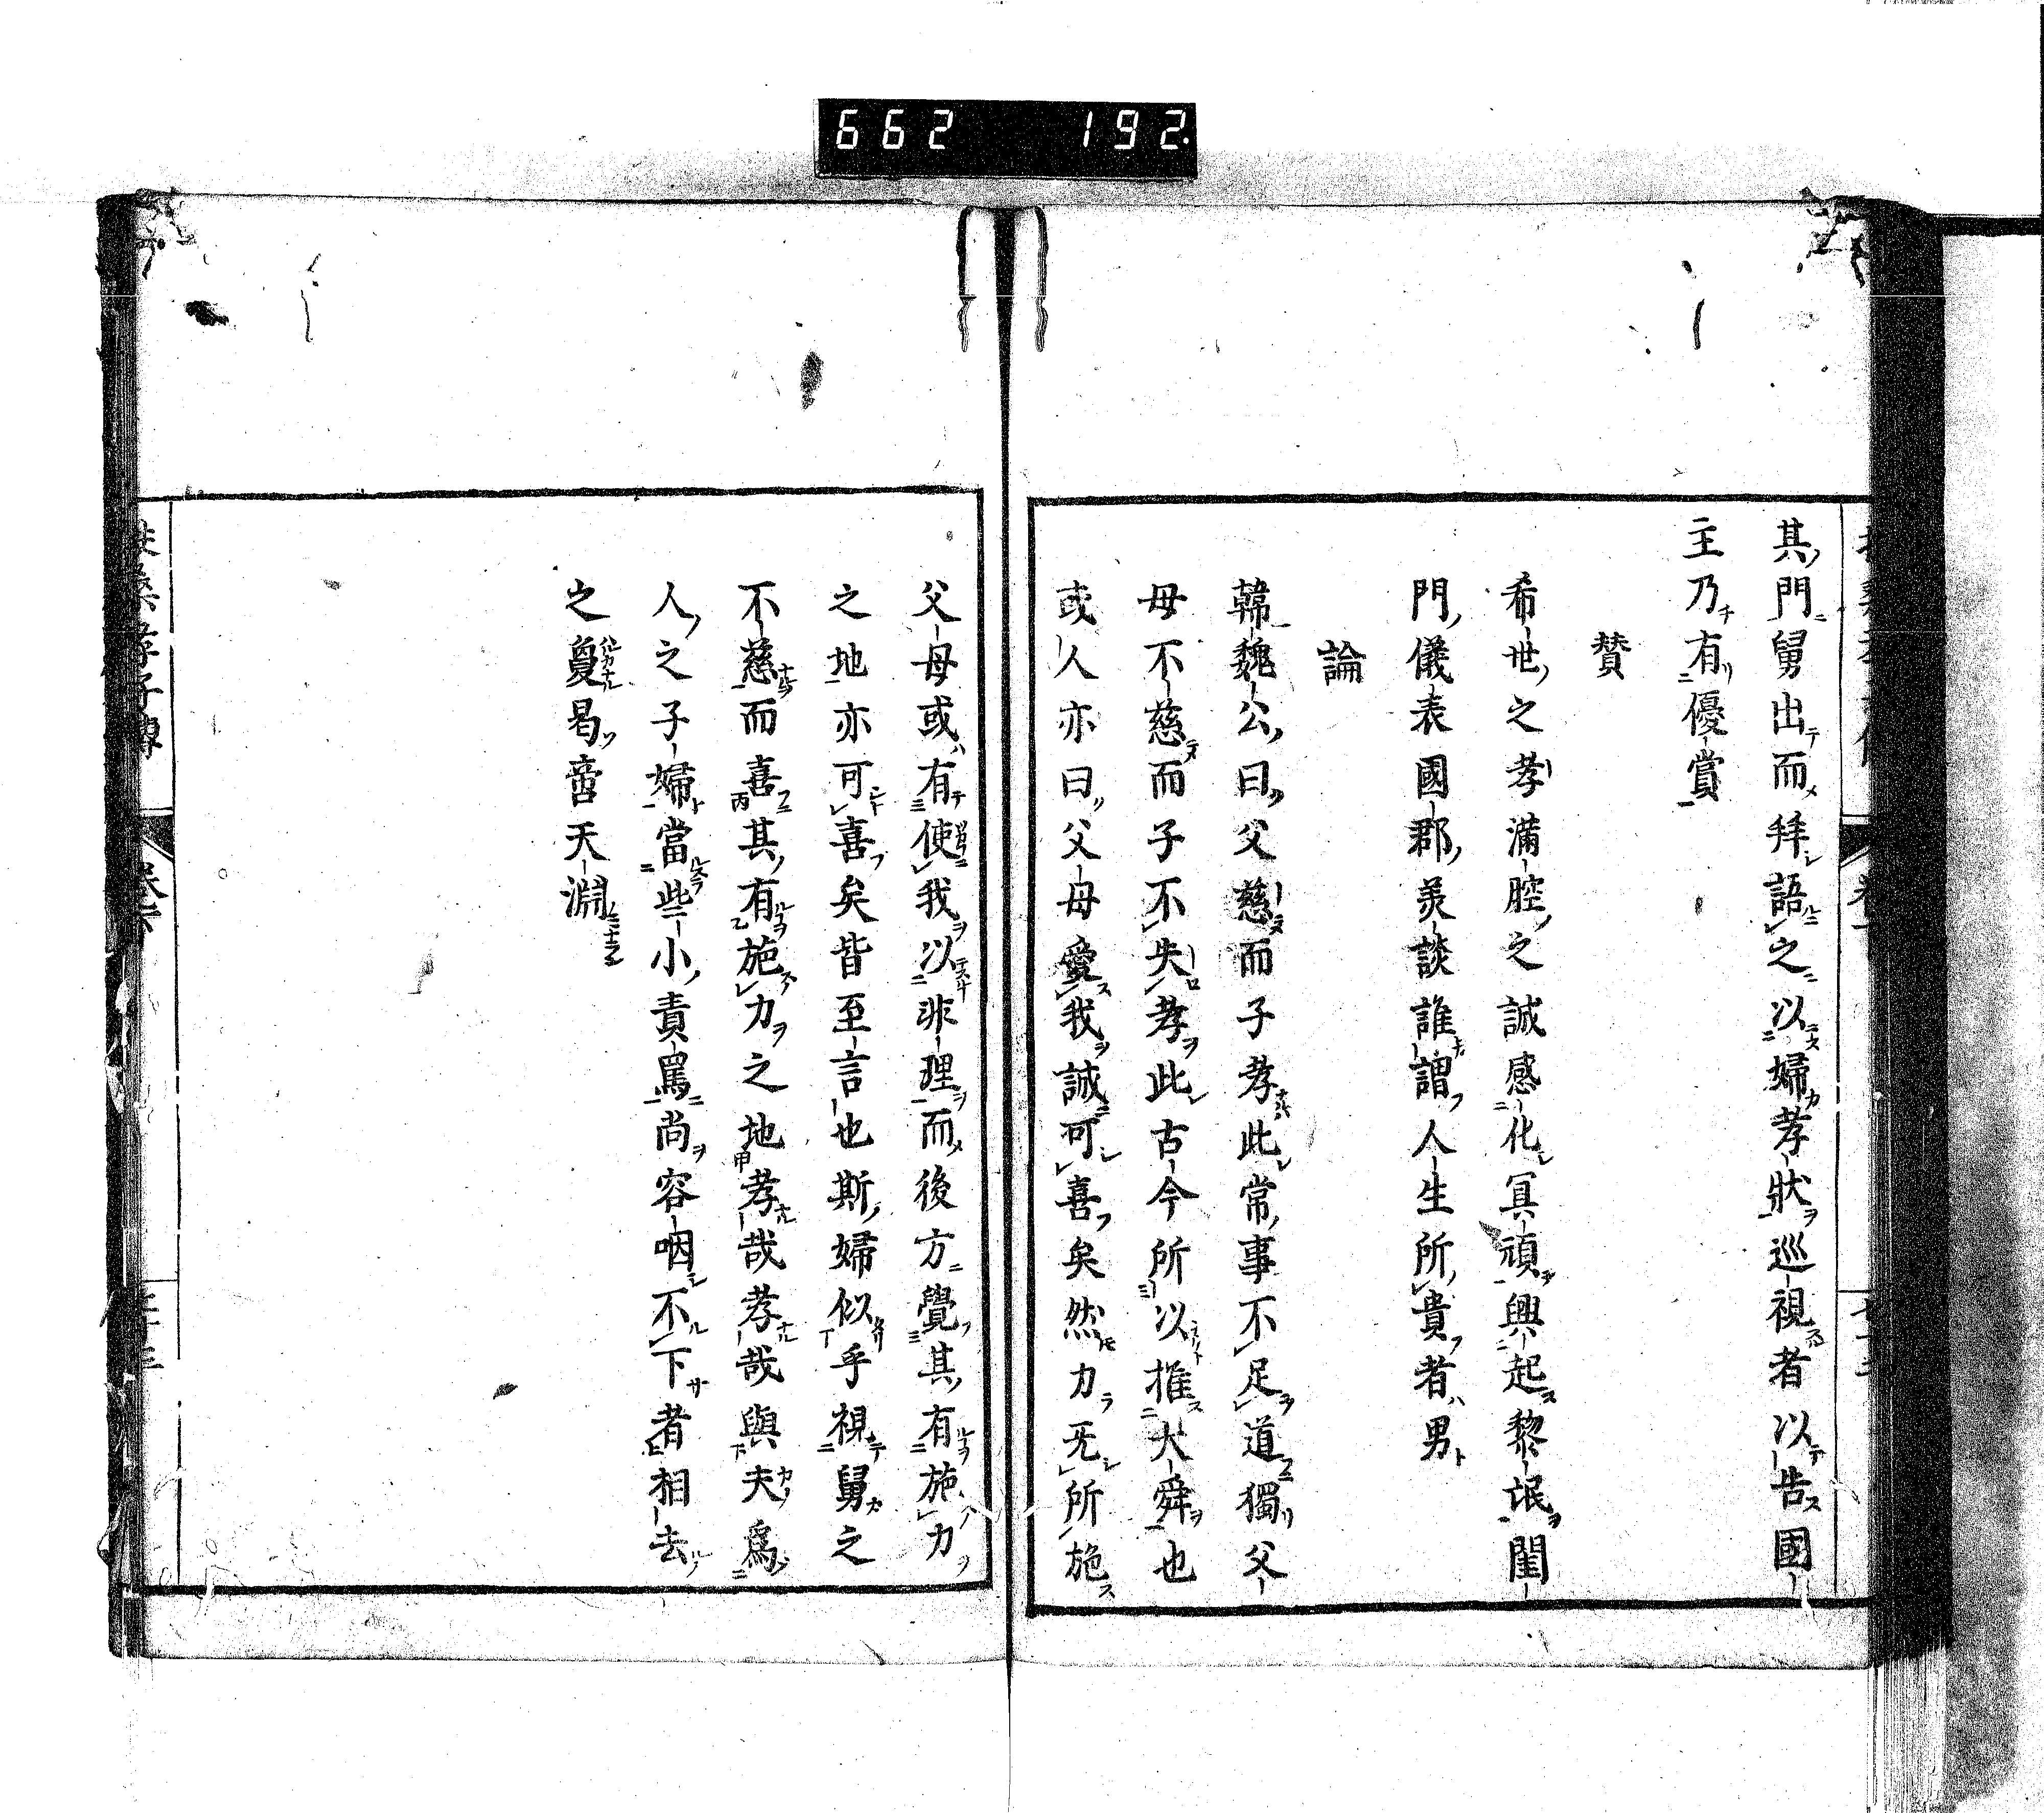 662 192
其門舅出而拜語之以婦孝狀巡視者以告國
主乃有優賞
賛
希世之孝滿腔之誠感化冥頑興起黎氓閨
門儀表國郡羙談誰謂人生所貴者男
論
韓魏公曰父慈而子孝此常事不足道獨父
母不慈而子不失孝此古今所以推大舜也
或人亦曰父母愛我誠可喜矣然力无所施
父母或有使我以非理而後方覺其有施力
之地亦可喜矣皆至言也斯婦似乎視舅之
不慈而喜其有施力之地孝哉孝哉與夫爲
人之子婦當些小責駡尚容咽不下者相去
之敻曷啻天淵
扶桑孝子傳